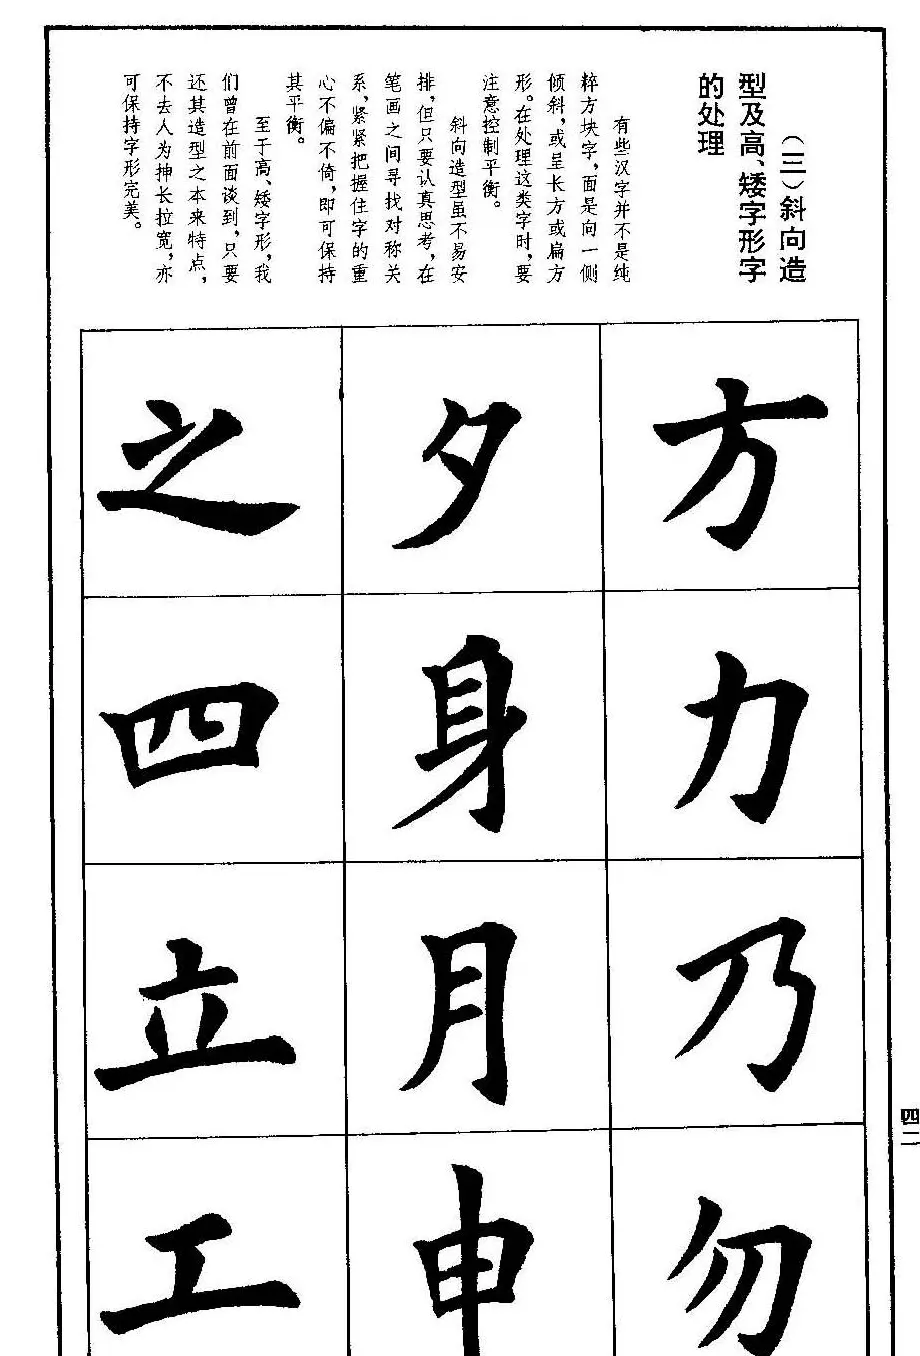 （三）斜向造
型及高、矮字形字
的处理
有些汉字并不是纯
粹方块字，面是向一侧
倾斜，或呈长方或扁方
形。在处理这类字时，要
注意控制平衡。
斜向造型虽不易安
排，但只要认真思考，在
笔画之间寻找对称关
系，紧紧把握住字的重
心不偏不倚，即可保持
其平衡。
至于高、矮字形，我
们曾在前面谈到，只要
还其造型之本来特点，
不去人为抻长拉宽，亦
可保持字形完美。
方
力
乃
勿
夕
身
月
申
之
四
立
工
四二